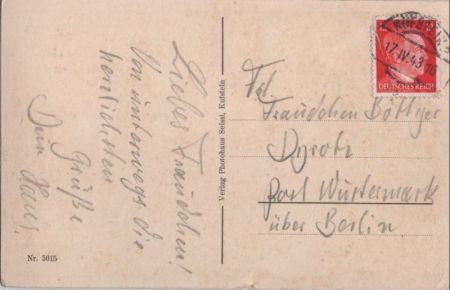 Liebes Traudchen!
Von unterwegs die
herzlichsten
Grüße
Dein Hans.
Nr. 5015
Verlag Photohaus Seisl, Kufstein
KUFSTEIN
17.IV.43
DEUTSCHES REICH
Frl.
Traudchen Böttger
Dyrotz
Post Wustermark
über Berlin.